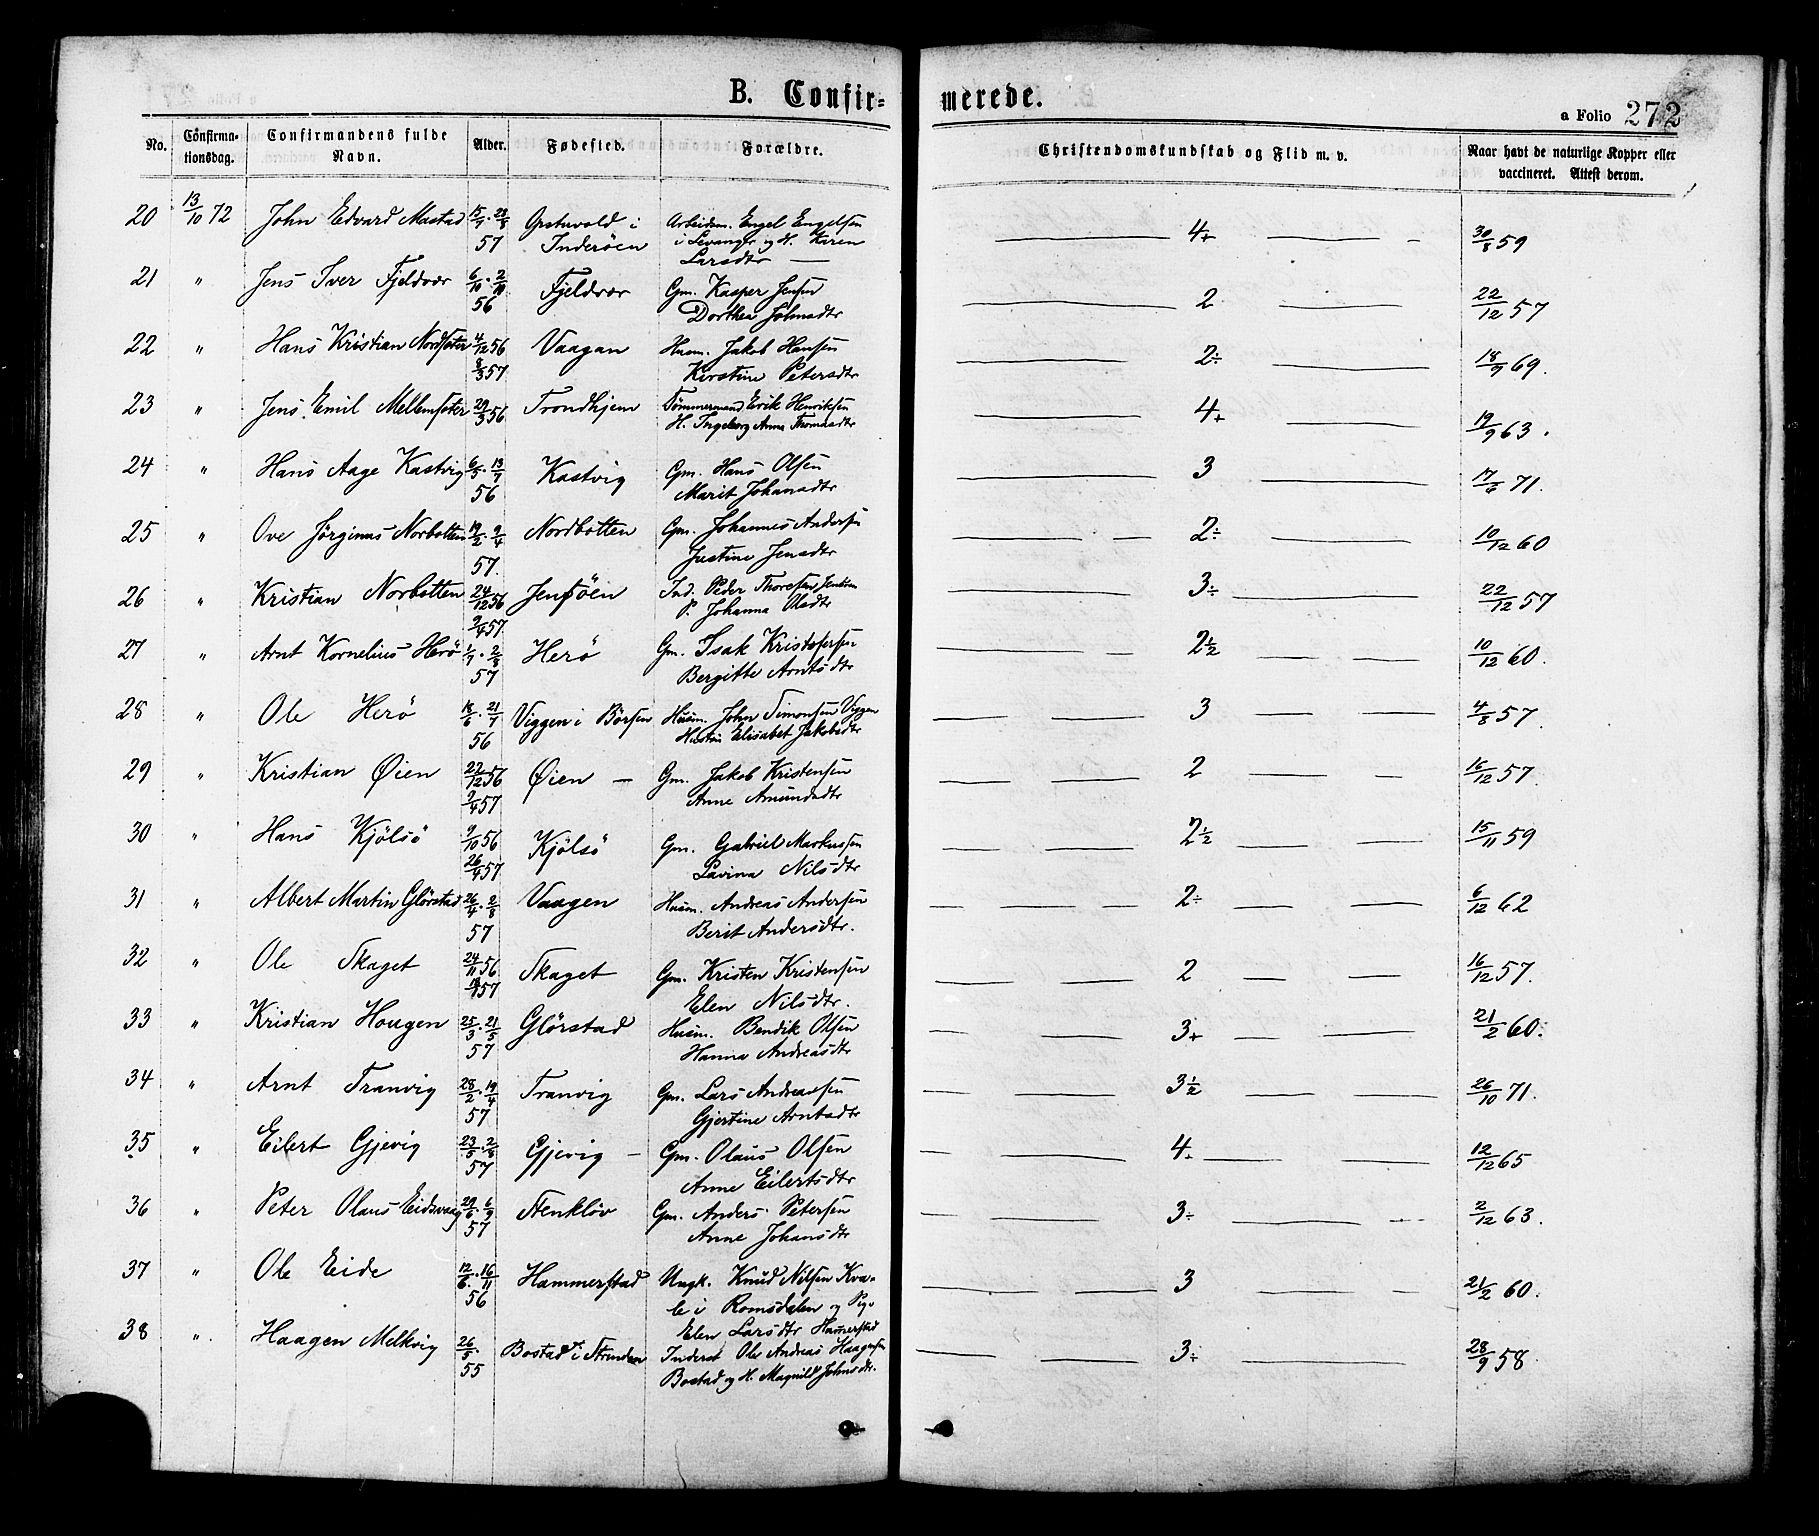 B. Confir-
merede.
a Folio 272
No. Confirma-tionsdag. Confirmandens fulde Navn. Alder. Fødested. Forældre. Christendomskundskab og Flid m. v. Naar havt de naturlige Kopper eller vaccineret. Attest derom.
20 13/10 72 John Edvard Mastad 15/7 · 23/8 57 i Inderöen Arbeidsm. Engel Engelsen i Levanger og H. Karen Larsdtr — 4+ 30/8 59
21 " Jens Iver Fjeldvær 6/10 · 2/10 56 Fjeldvær Gm. Kasper Jensen Dorthea Johnsdtr 2 22/12 57
22 " Hans Kristian Nordsæter 4/12 56 8/3 57 Vaagan Husm. Jakob Hansen Kirstine Petersdtr 2÷ 18/9 69.
23 " Jens Emil Mellemsæter 29/3 56 Trondhjem Tömmermand Erik Henriksen H. Ingeborg Anna Thomasdtr 4+ 19/9 63.
24 " Hans Aage Kastvig 6/5 · 13/7 56 Kastvig Gm. Hans Olsen Marit Johansdtr 3 17/6 71.
25 " Ove Jörginus Norbotten 19/2 · 9/4 57. Nordbotten Gm. Johannes Andersen Justine Jensdtr 2÷ 10/12 60
26 " Kristian Norbotten 24/12 56 9/4 57 Jensöen Ind. Peder Thoresen Jensöen P. Johanna Olsdtr 3÷ 22/12 57
27 " Arnt Kornelius Herö 1/7 · 2/8 57 Herö Gm. Isak Kristofersen Bergitte Arntsdtr 2½ 10/12 60.
28 " Ole Herö 18/6 · 21/7 56 Viggen i Börsen Husm. John Simonsen Viggen Hustru Elisabet Jakobsdtr 3 4/8 57.
29 " Kristian Øien 22/12 56 9/4 57 Øien — Gm. Jakob Kristensen Anne Amundsdtr 2 16/12 57.
30 " Hans Kjölsö 9/10 56 26/4 57 Kjölsö Gm. Gabriel Markussen Lavina Nilsdtr 2½ 15/11 59
31 " Albert Martin Glörstad 26/4 · 2/8 57 Vaagen Husm. Andreas Andersen Berit Andersdtr. 2÷ 6/12 62
32 " Ole Skaget 24/11 56 57 Skaget Gm. Kristen Kristensen Elen Nilsdtr. 2 16/12 57.
33 " Kristian Hougen 25/3 · 21/5 57 Glörstad Husm. Bendik Olsen Hanna Andreasdtr 3+ 21/2 60.
34 " Arnt Tranvig 28/2 · 19/4 57 Tranvig Gm. Lars Andreassen Gjertine Arntsdtr 3½ 26/10 71.
35 " Eilert Gjevig 23/5 · 2/8 57 Gjevig — Gm. Olaus Olsen Anne Eilertsdtr 4÷ 12/12 65
36 " Peter Olaus Eidsvaag 29/6 · 6/9 57 Stenklöv Gm. Anders Petersen Anne Johansdtr 3÷ 2/12 63.
37 " Ole Eide 12/6 · 16/11 56 Hammerstad Ungk. Knud Nilsen Kvale i Romsdalen og Pige Elen Larsdtr Hamerstad 3 21/2 60.
38 " Haagen Melkvig 26/5 · 55 Bostad i Strinden Inderst Ole Andreas Haagensen Bostad og H. Magnild Johnsdtr. 3÷ 28/9 58.